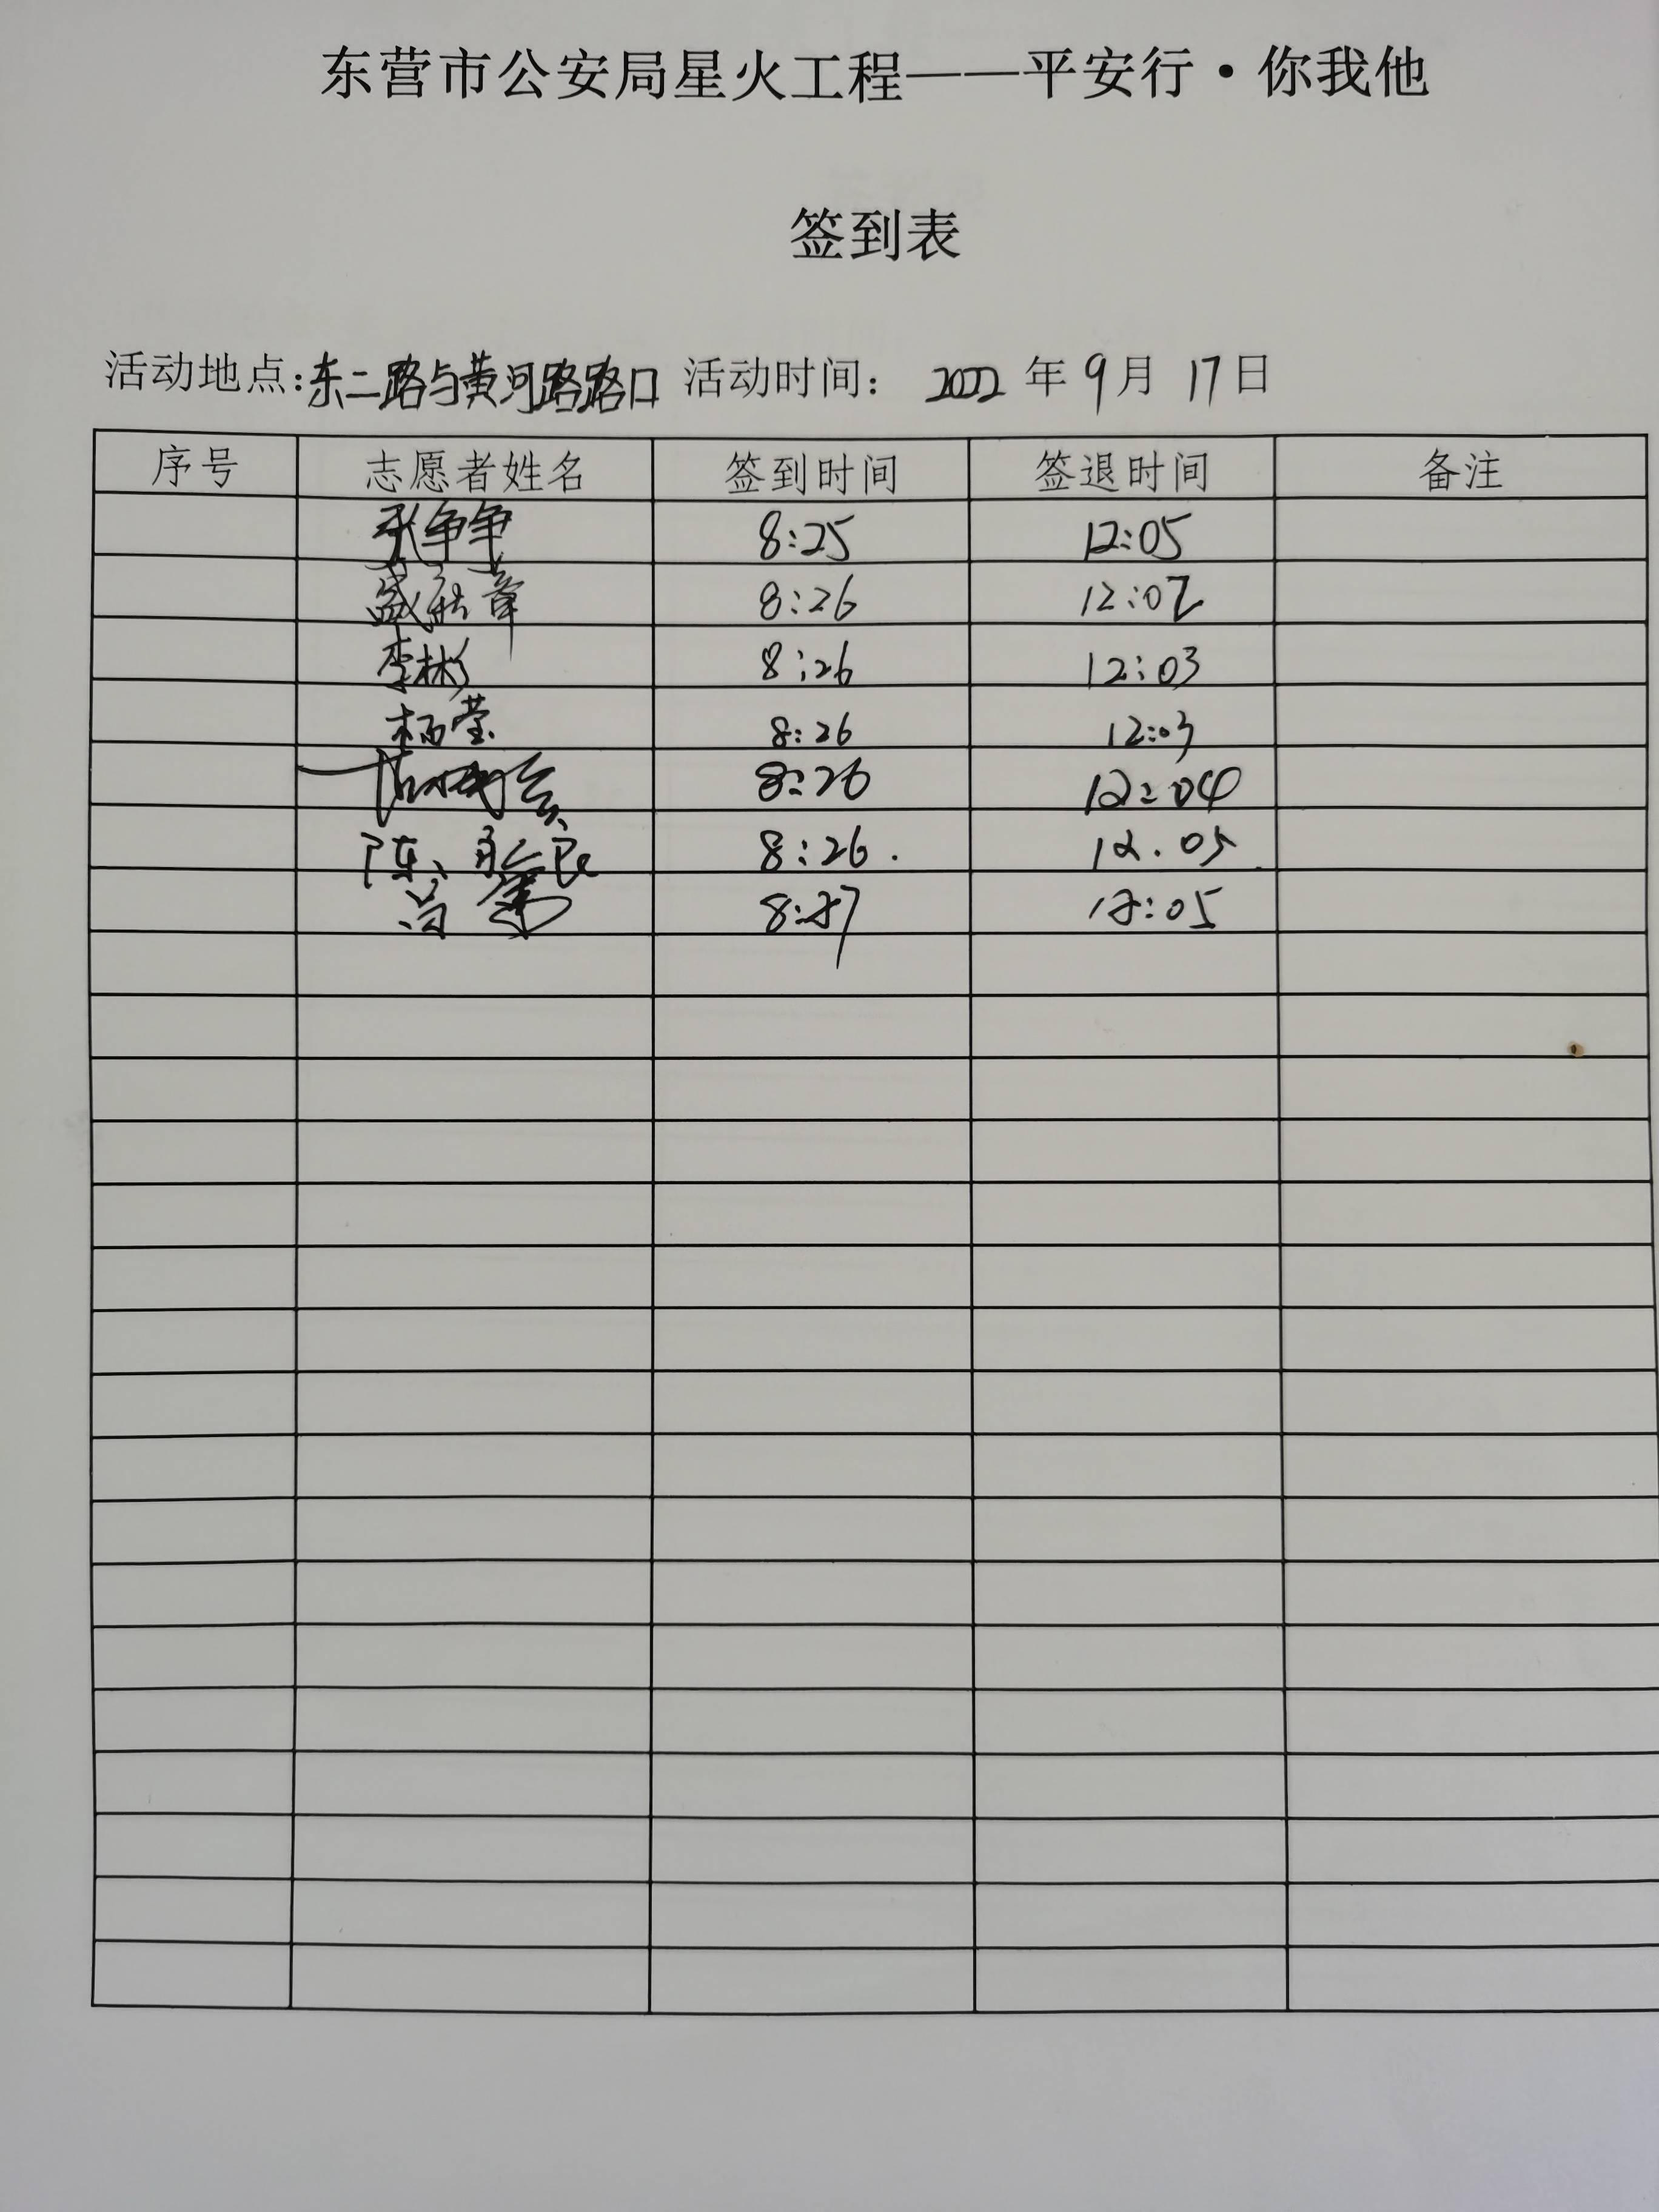 东营市公安局星火工程——平安行·你我他
签到表
活动地点:东二路与黄河路路口 活动时间: 2022 年 9 月 17 日
序号 志愿者姓名 签到时间 签退时间 备注
张争争 8:25 12:05
盛秋章 8:26 12:02
李彬 8:26 12:03
杨莹 8:26 12:03
8:26 12:04
陈 良 8:26. 12.05
8:27 12:05